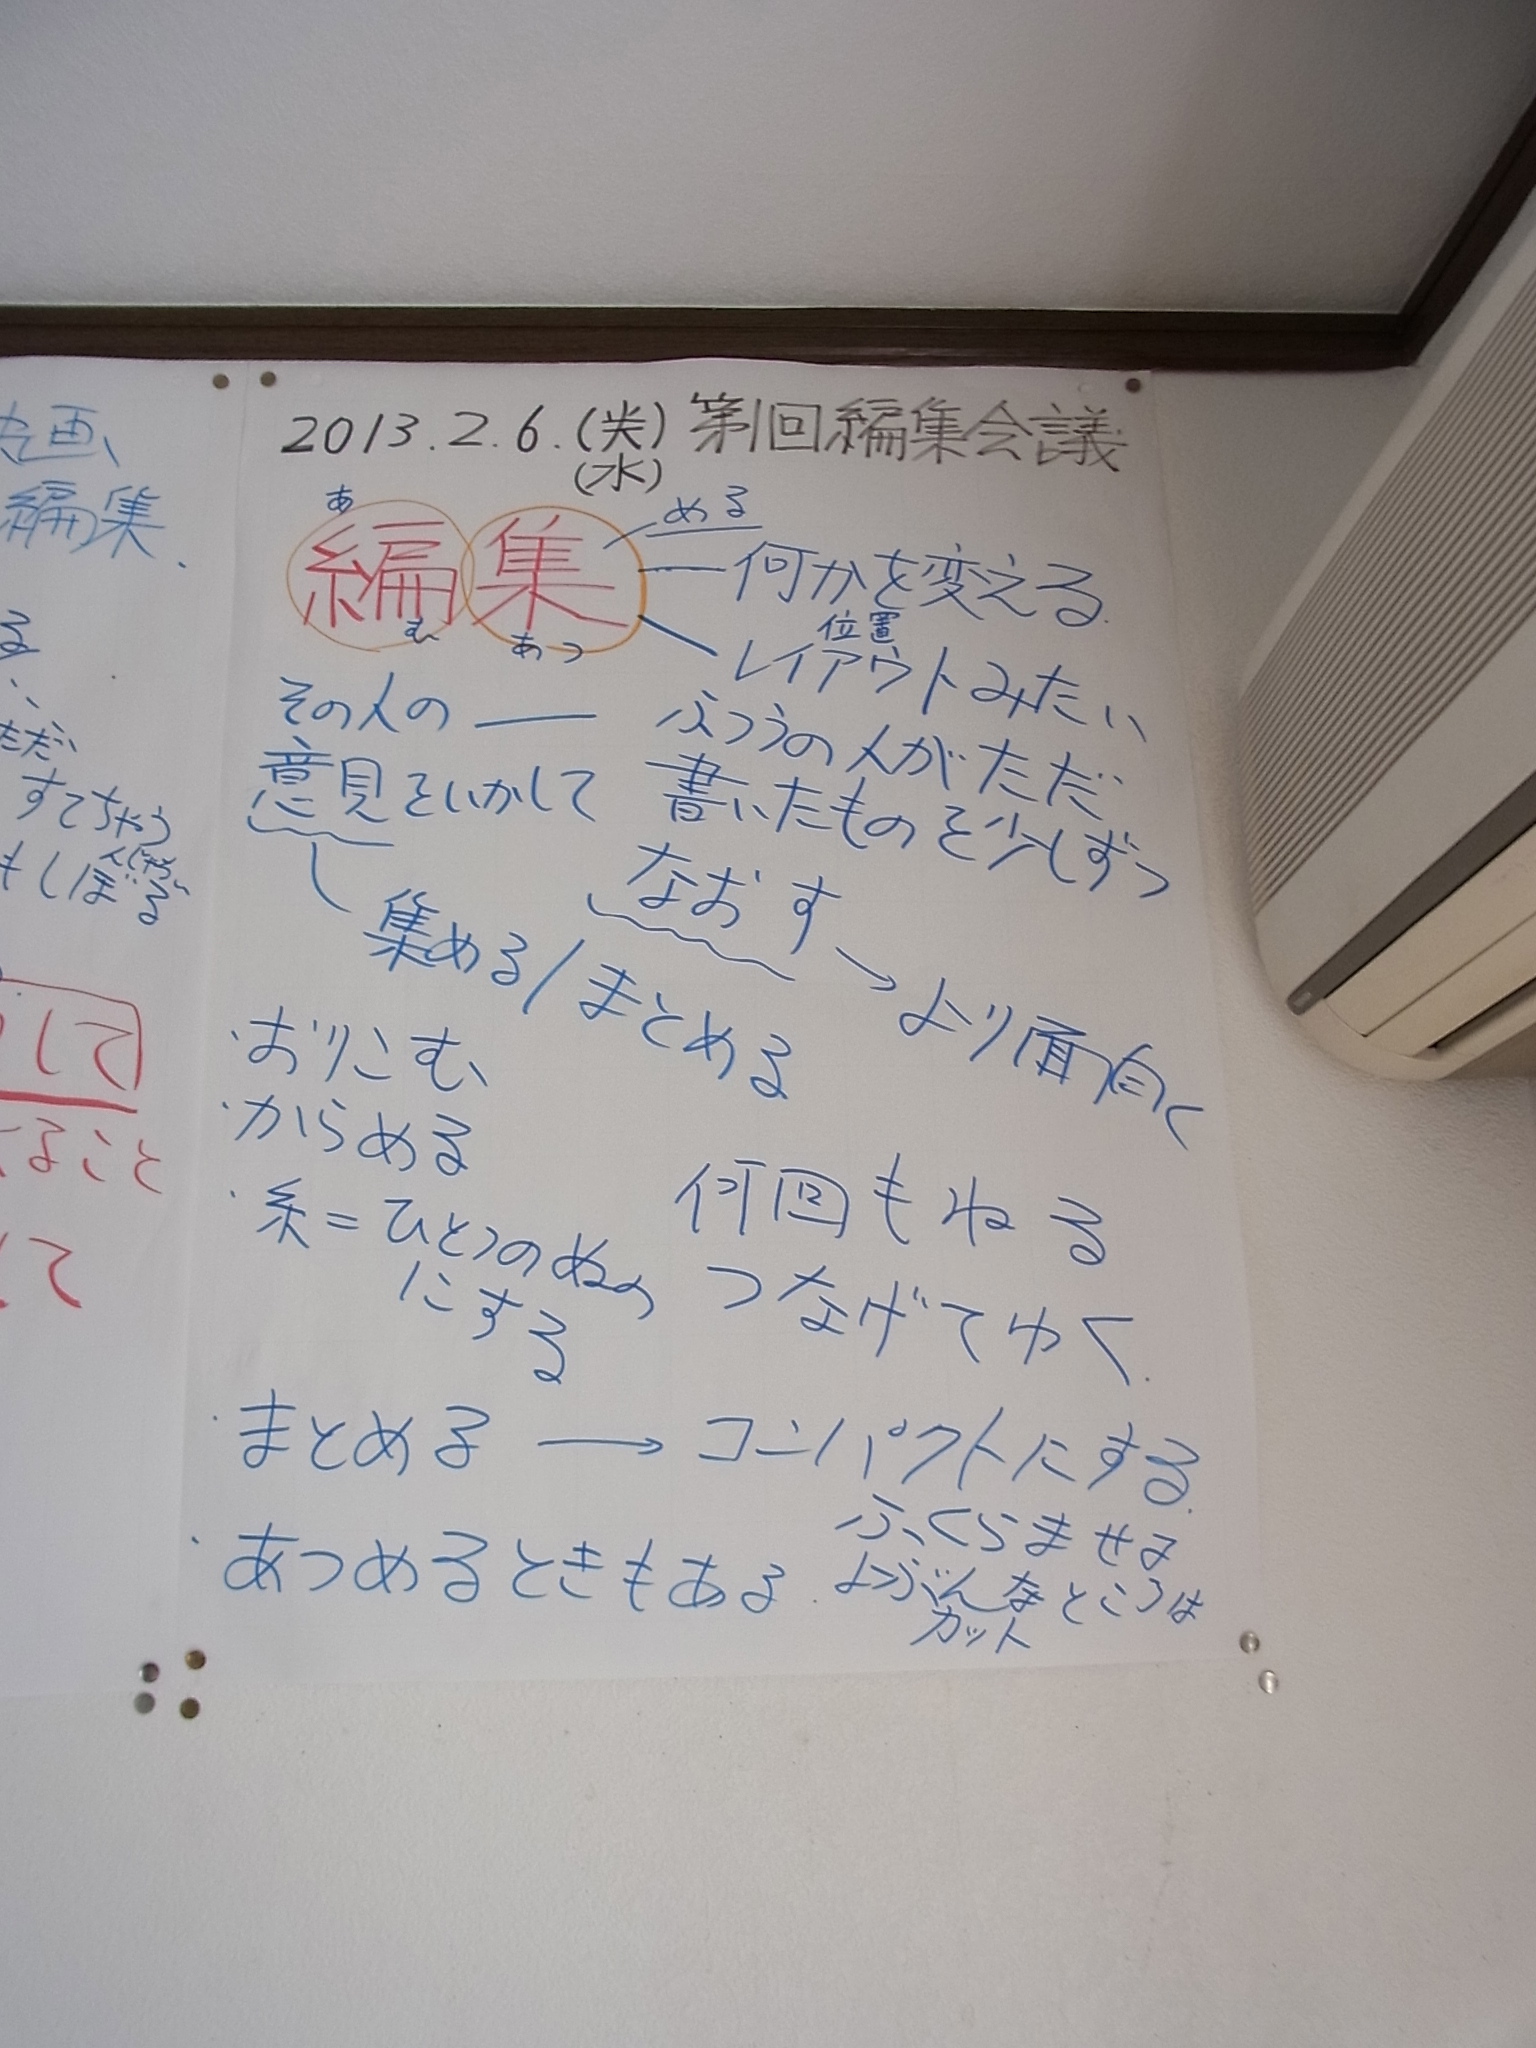 2013.2.6.(火)第1回編集会議
(水)
あ
める
編集
む
あつ
何かを変える
位置
レイアウトみたい
その人の ― ふつうの人がただ
意見をいかして 書いたものを少しずつ
なおす → より面白く
集める/まとめる
・おりこむ
・からめる
・糸=ひとつのぬの
にする
何回もねる
つなげてゆく
・まとめる → コンパクトにする
・あつめるときもある.
ふくらませる
よぶんなところは
カット
画、
編集.
る
ただ、
すてちゃう
んじゃない
もしぼる
して
ること
して